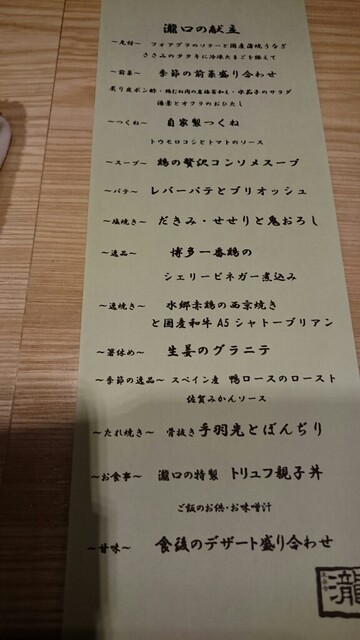 瀧口の献立
～先付～ フォアグラのソテーと国産蒲焼うなぎ
ささみのタタキに冷燻たまごを添えて
～前菜～ 季節の前菜盛り合わせ
炙り皮ポン酢・鶏むね肉の梅和え・水茄子のサラダ
湯葉とオクラのおひたし
～つくね～ 自家製つくね
トウモロコシとトマトのソース
～スープ～ 鶏の贅沢コンソメスープ
～パテ～ レバーパテとブリオッシュ
～塩焼き～ だきみ・せせりと鬼おろし
～逸品～ 博多一番鶏の
シェリービネガー煮込み
～逸焼き～ 水郷赤鶏の西京焼き
と国産和牛A5シャトーブリアン
～箸休め～ 生姜のグラニテ
～季節の逸品～ スペイン産 鴨ロースのロースト
佐賀みかんソース
～たれ焼き～ 骨抜き手羽先とぼんぢり
～お食事～ 瀧口の特製 トリュフ親子丼
ご飯のお供・お味噌汁
～甘味～ 食後のデザート盛り合わせ
瀧